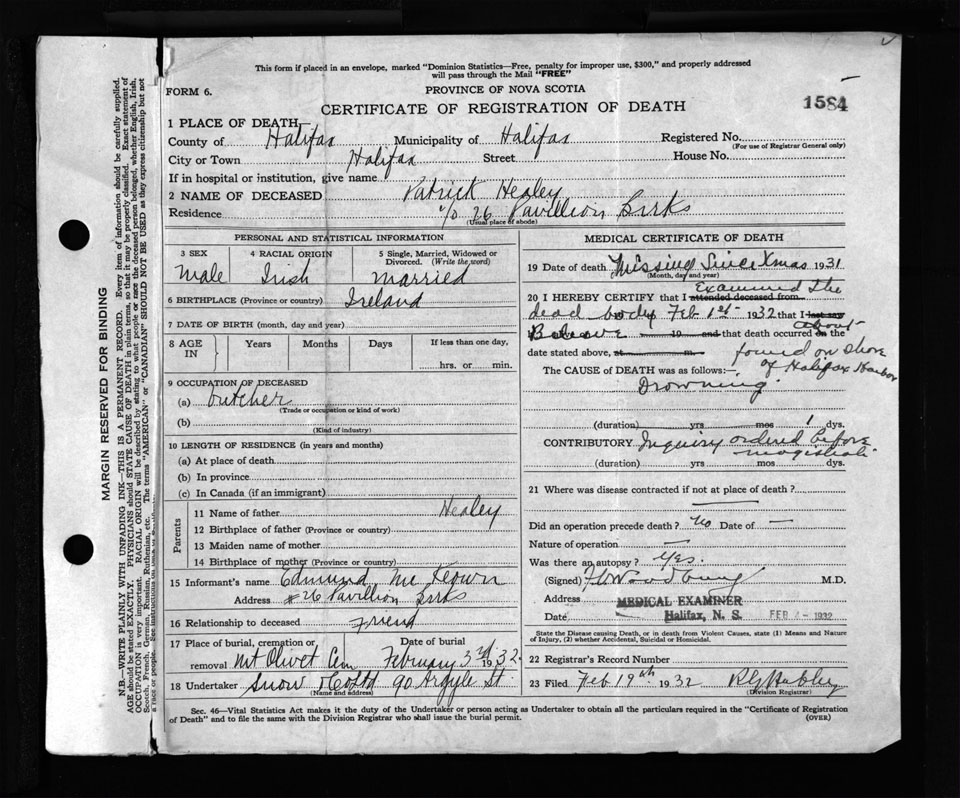 This form if placed in an envelope, marked "Dominion Statistics—Free, penalty for improper use, $300," and properly addressed
will pass through the Mail "FREE"
FORM 6.
PROVINCE OF NOVA SCOTIA
CERTIFICATE OF REGISTRATION OF DEATH
1584
1 PLACE OF DEATH
County of Halifax Municipality of Halifax Registered No.
(For use of Registrar General only)
City or Town Halifax Street House No.
If in hospital or institution, give name
2 NAME OF DECEASED Patrick Healey
Residence c/o 26 Pavillion Brks
(Usual place of abode)
PERSONAL AND STATISTICAL INFORMATION
3 SEX 4 RACIAL ORIGIN 5 Single, Married, Widowed or
Divorced. (Write the word)
Male Irish Married
6 BIRTHPLACE (Province or country) Ireland
7 DATE OF BIRTH (month, day and year)
8 AGE IN Years Months Days If less than one day,
hrs. or min.
9 OCCUPATION OF DECEASED
(a) butcher
(Trade or occupation or kind of work)
(b)
(Kind of industry)
10 LENGTH OF RESIDENCE (in years and months)
(a) At place of death
(b) In province
(c) In Canada (if an immigrant)
Parents
11 Name of father Healey
12 Birthplace of father (Province or country)
13 Maiden name of mother
14 Birthplace of mother (Province or country)
15 Informant's name Edmund Mc Keown
Address #26 Pavillion Brks
16 Relationship to deceased Friend
17 Place of burial, cremation or Date of burial
removal Mt Olivet Cem February 3rd 1932
18 Undertaker Snow & Co Ltd 90 Argyle St.
(Name and address)
MEDICAL CERTIFICATE OF DEATH
19 Date of death Missing Since Xmas 1931
(Month, day and year)
Examined the
20 I HEREBY CERTIFY that I attended deceased from
dead body Feb 1st 1932 that I last saw
19 and that death occurred about on the
date stated above, at m.
found on shore
of Halifax Harbor
The CAUSE OF DEATH was as follows:—
Drowning
(duration) yrs mos 1 dys.
CONTRIBUTORY Inquiry ordered before
magistrate
(duration) yrs mos dys.
21 Where was disease contracted if not at place of death?
Did an operation precede death? No Date of —
Nature of operation —
Was there an autopsy? Yes.
(Signed) Woodbury M.D.
Address
MEDICAL EXAMINER
Date Halifax, N. S. FEB 4 - 1932
State the Disease causing Death, or in death from Violent Causes, state (1) Means and Nature
of Injury, (2) whether Accidental, Suicidal or Homicidal.
22 Registrar's Record Number
23 Filed Feb 19th 1932
(Division Registrar)
Sec. 46—Vital Statistics Act makes it the duty of the Undertaker or person acting as Undertaker to obtain all the particulars required in the "Certificate of Registration
of Death" and to file the same with the Division Registrar who shall issue the burial permit.
(OVER)
MARGIN RESERVED FOR BINDING
N.B.—WRITE PLAINLY WITH UNFADING INK—THIS IS A PERMANENT RECORD. Every item of information should be carefully supplied.
AGE should be stated EXACTLY. PHYSICIANS should STATE CAUSE OF DEATH in plain terms, so that it may be properly classified. Exact statement of
OCCUPATION is very important. RACIAL ORIGIN will be described by stating to what people or race the deceased person belonged, whether English, Irish,
Scotch, French, German, Russian, Ruthenian, etc. The terms "AMERICAN" or "CANADIAN" SHOULD NOT BE USED as they express citizenship but not
a race or people.